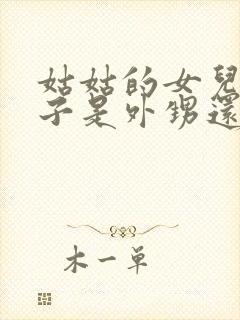 姑姑的女兒
子是外甥還
木一單